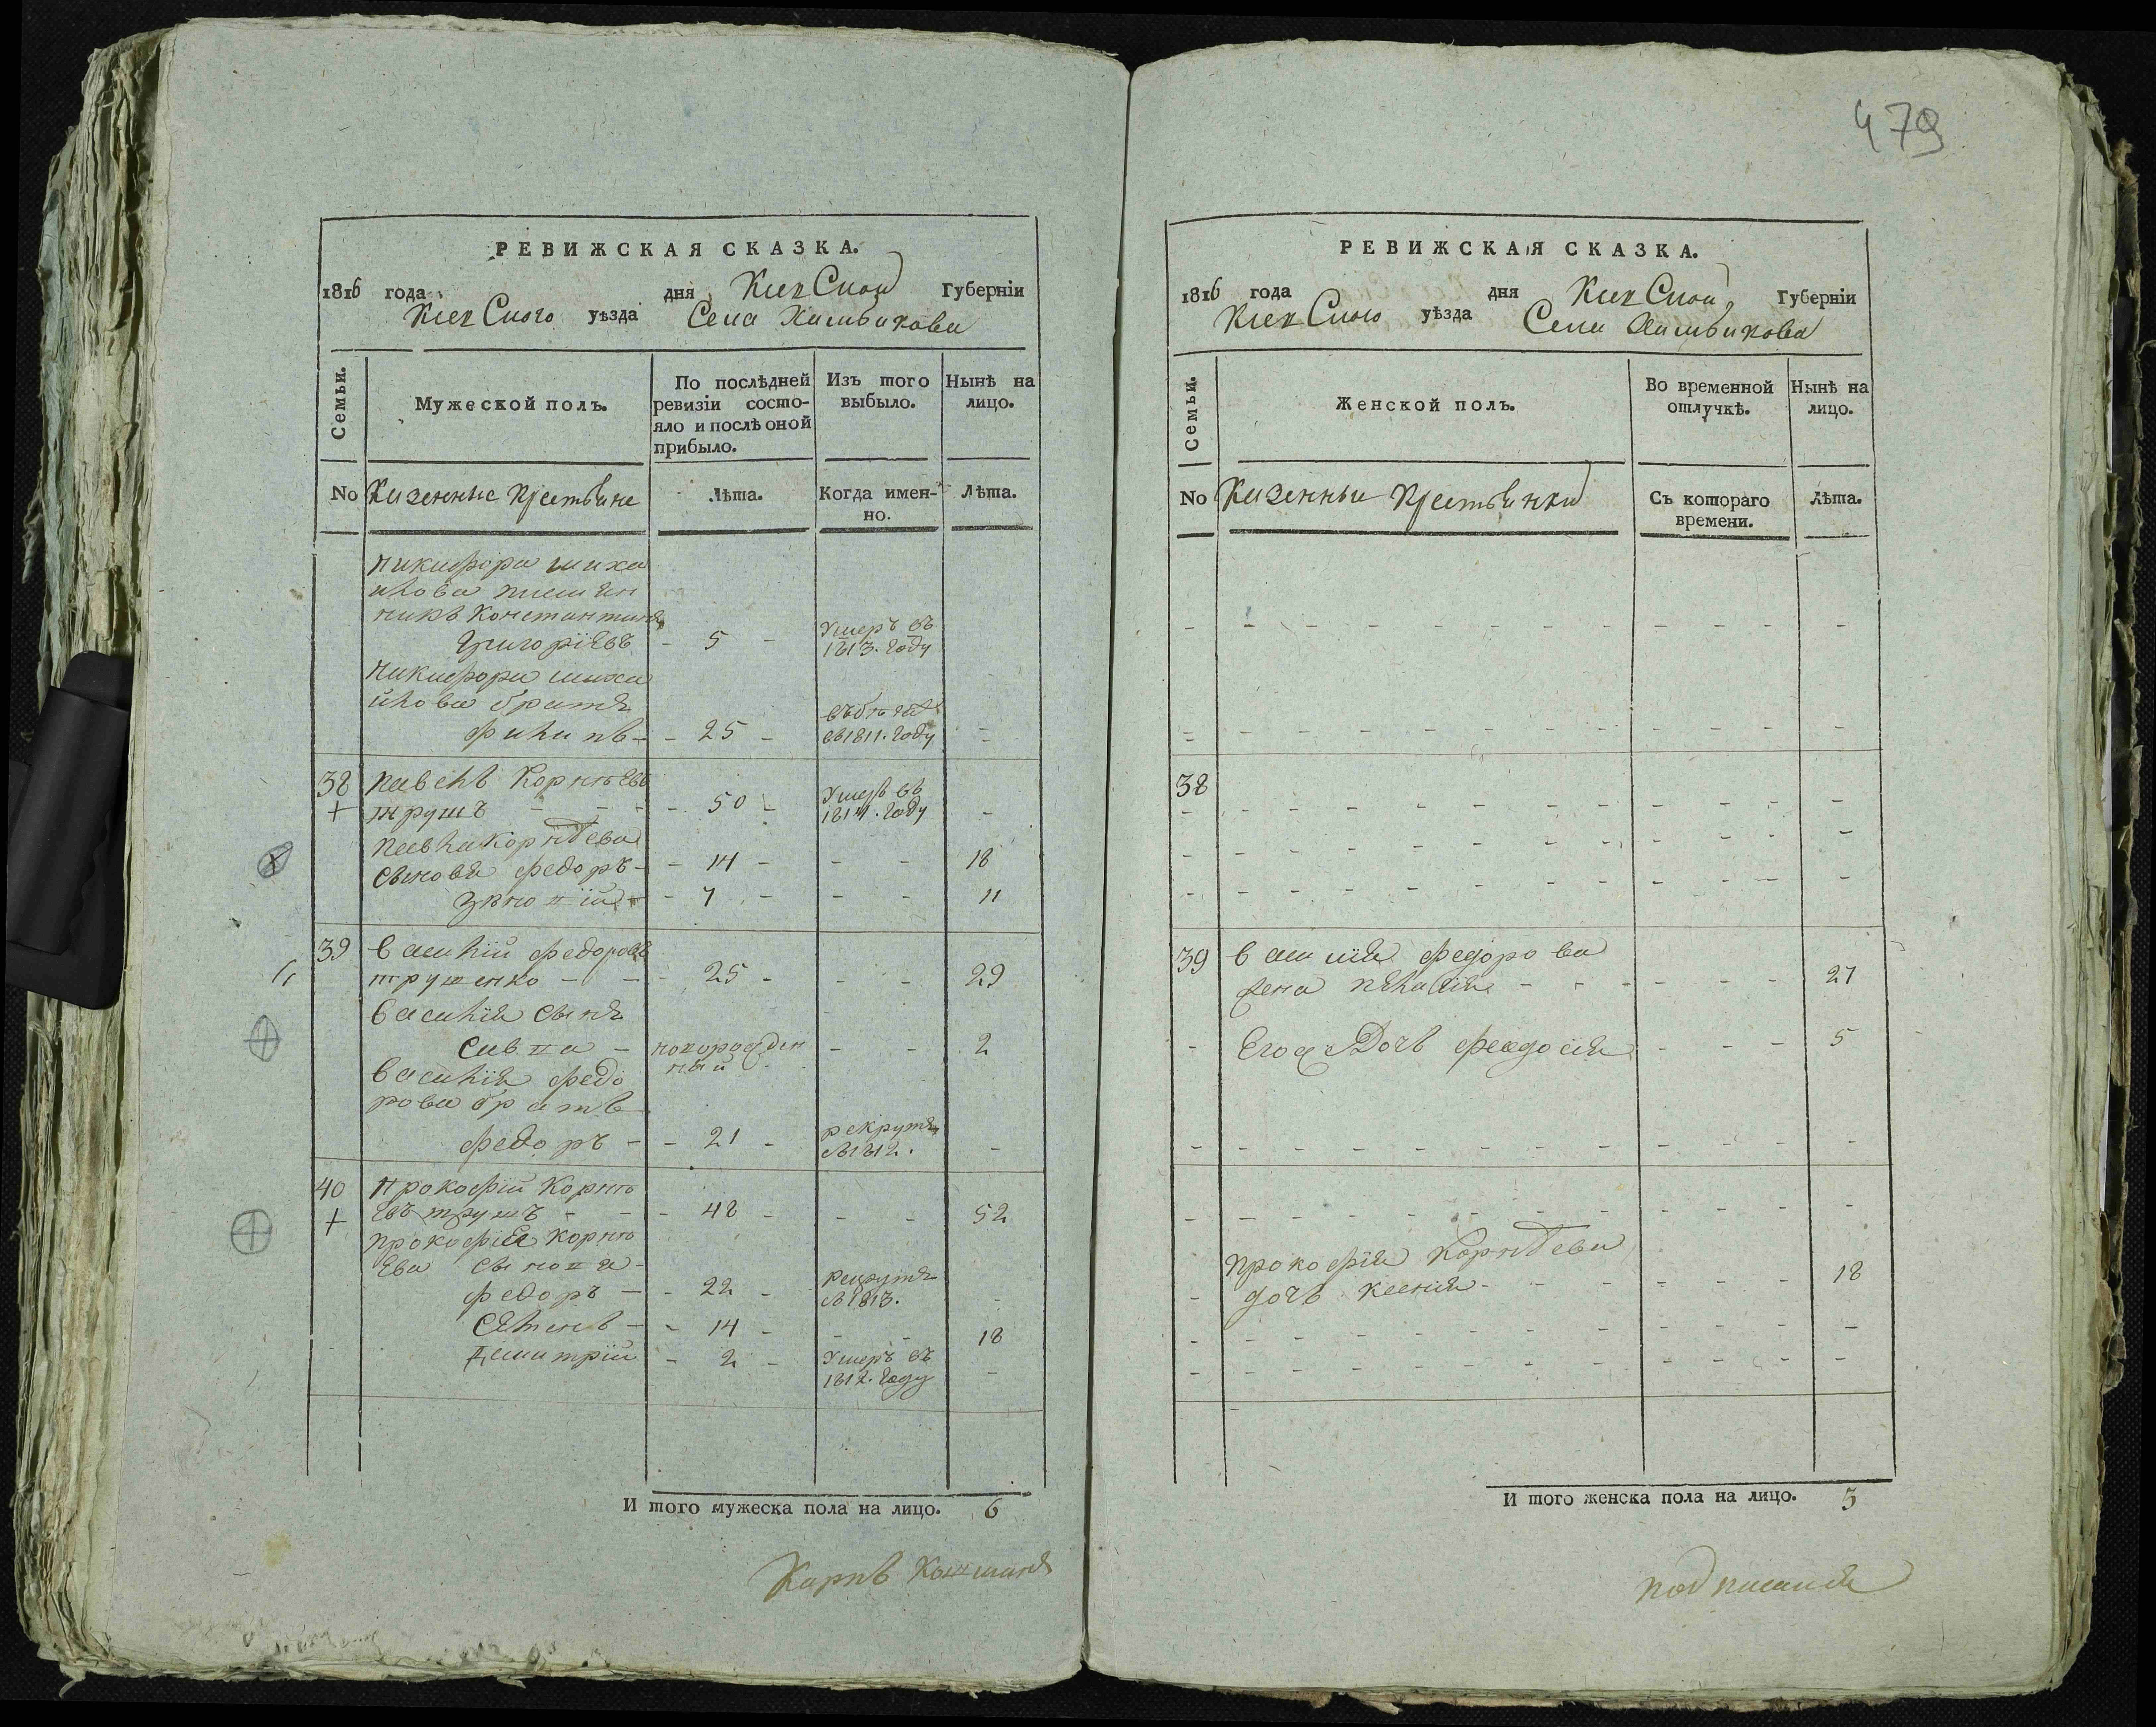 479
РЕВИЖСКАЯ СКАЗКА.
1816 года дня Киевской Губерніи
Киевского уѣзда Села
Семьи.
Мужеской полъ.
По послѣдней ревизіи состо-
яло и послѣ оной
прибыло.
Изъ того
выбыло.
Нынѣ на
лицо.
No Казенные Крестьяне
Лѣта.
Когда имен-
но.
Лѣта.
Никифора Миха
йлова племян
никъ Константинъ
Григоріевъ - 5 - Умеръ въ
1813. Году
Никифора Миха
йлова братъ
Филипъ - - 25 -
въ 1811. Году -
38 Павелъ Корнѣевъ
+ трушъ - - - 50 - Умеръ въ
1814. Году -
Павла Корнѣева
сыновя Федоръ - - 14 - - - 18
- 7 - - - 11
39 Василій Федоровъ
трушенко - - - 25 - - - 29
Василія сынъ
Савпа - новорожден
ный - - 2
Василія Федо
рова братъ
Федоръ - - 21 - рекрутъ
въ 1812. -
40 Прокофій Корнѣ
+ евъ трушъ - - - 48 - - - 52
Прокофія Корнѣ
ева сыновя -
Федоръ - - 22 - рекрутъ
въ 1813. -
- - 14 - - - 18
Дмитрій - 2 - Умеръ въ
1812. Году -
И того мужеска пола на лицо. 6
Карпъ
РЕВИЖСКАЯ СКАЗКА.
1816 года дня Киевской Губерніи
Киевского уѣзда Села
Семьи.
Женской полъ.
Во временной
отлучкѣ.
Нынѣ на
лицо.
No Казенные Крестьянки
Съ котораго
времени.
Лѣта.
38
39 Василія Федорова
жена Пелагія - - - - - - - 27
- Егож Дочь Феодосія - - - 5
Прокофія Корнѣева
- дочь Ксенія - - - - - - 18
И того женска пола на лицо. 3